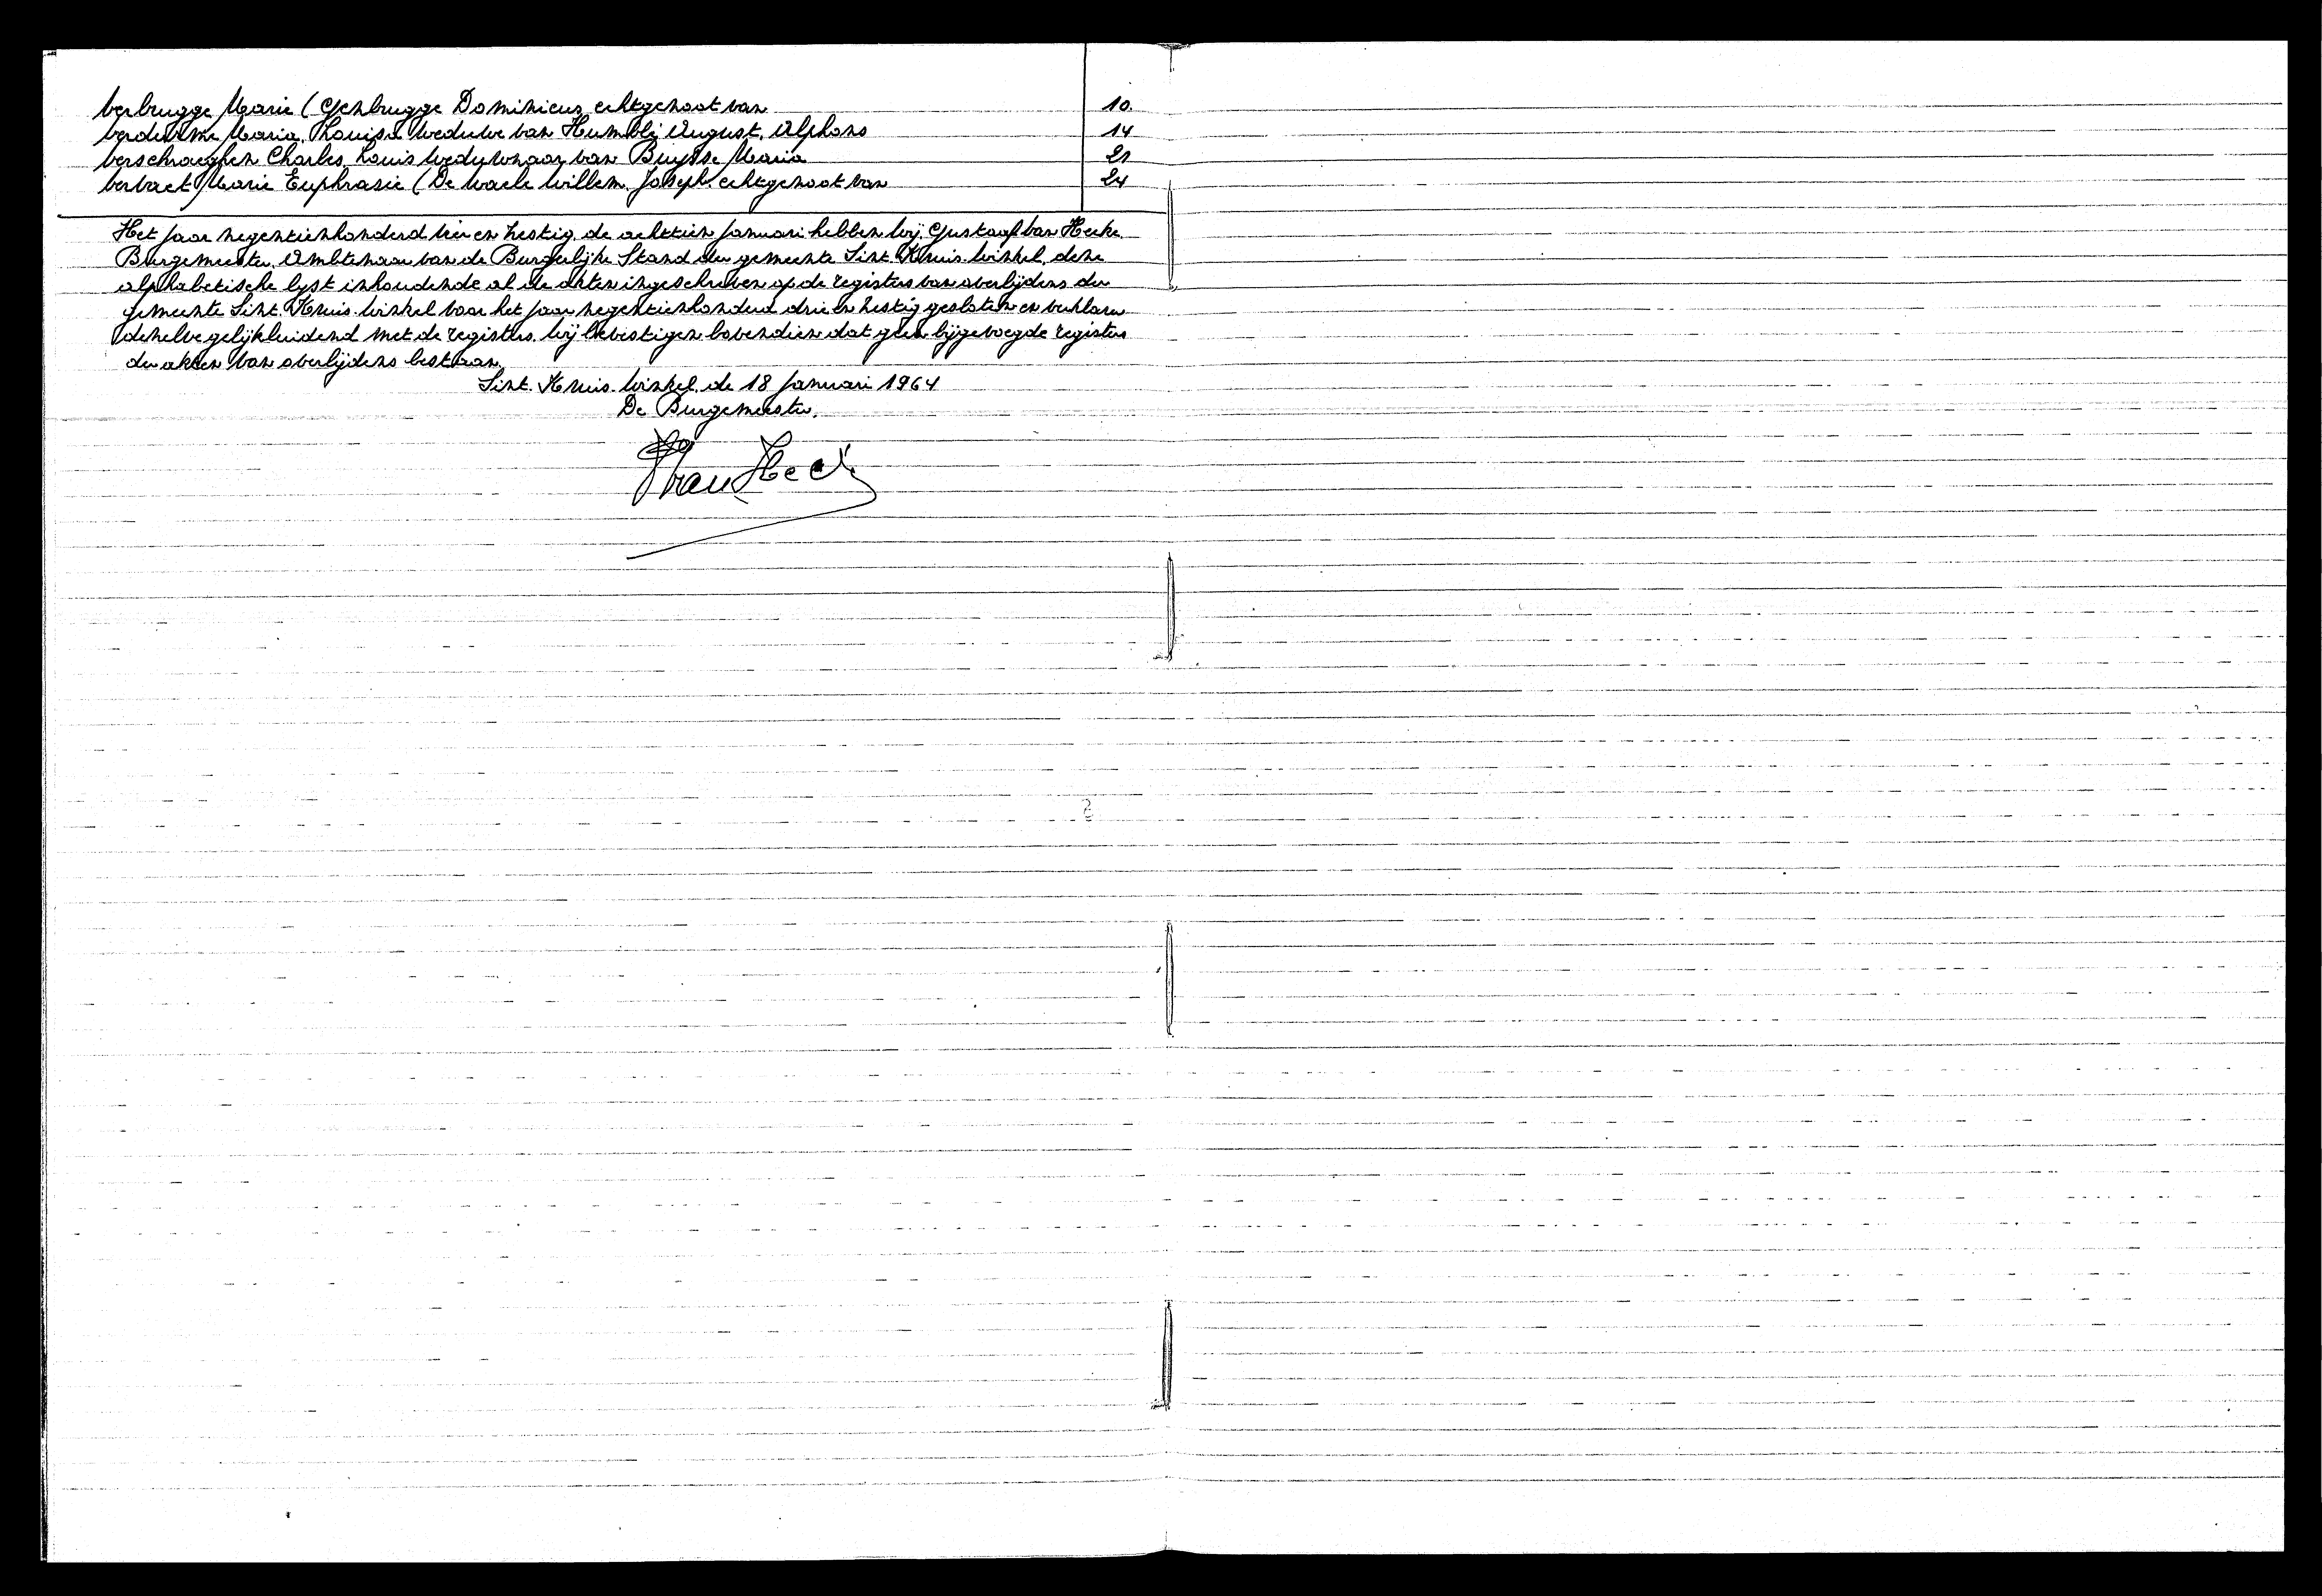 Verbrugge Marie (Genbrugge Dominicus echtgenoot van 10.
Verdurme Maria, Louisa weduwe van Humblij August, Alphons 14
Verschraeghen Charles, Louis weduwnaar van Buysse Maria 21
Vervaet Marie Euphrasie (De Waele Willem, Joseph. echtgenoot van 24
Het jaar negentienhonderd vier en zestig, de achttien januari hebben wij, Gustaaf Van Hecke
Burgemeester, Ambtenaar van de Burgerlijke Stand der gemeente Sint. Kruis. Winkel, deze
alphabetische lyst inhoudende al de akten ingeschreven op de registers van overlijdens der
gemeente Sint. Kruis. Winkel voor het jaar negentienhonderd drie en zestig gesloten en verklaren
dezelve gelijkluidend met de registers. Wij bevestigen bovendien dat geen bijgevoegde registers
der akten van overlijdens bestaan.
Sint. Kruis. Winkel, de 18 januari 1964
De Burgemeester.
Van Hecke